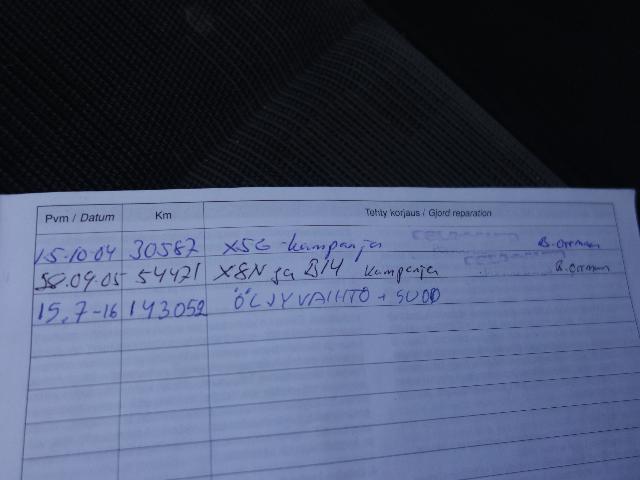 Pvm / Datum Km Tehty korjaus / Gjord reparation
15.10.04 30587 X5G -kampanja
.09.05 54471 X8N ja B14 kampanja
15.7-16 143052 ÖLJYVAIHTO + SUOD